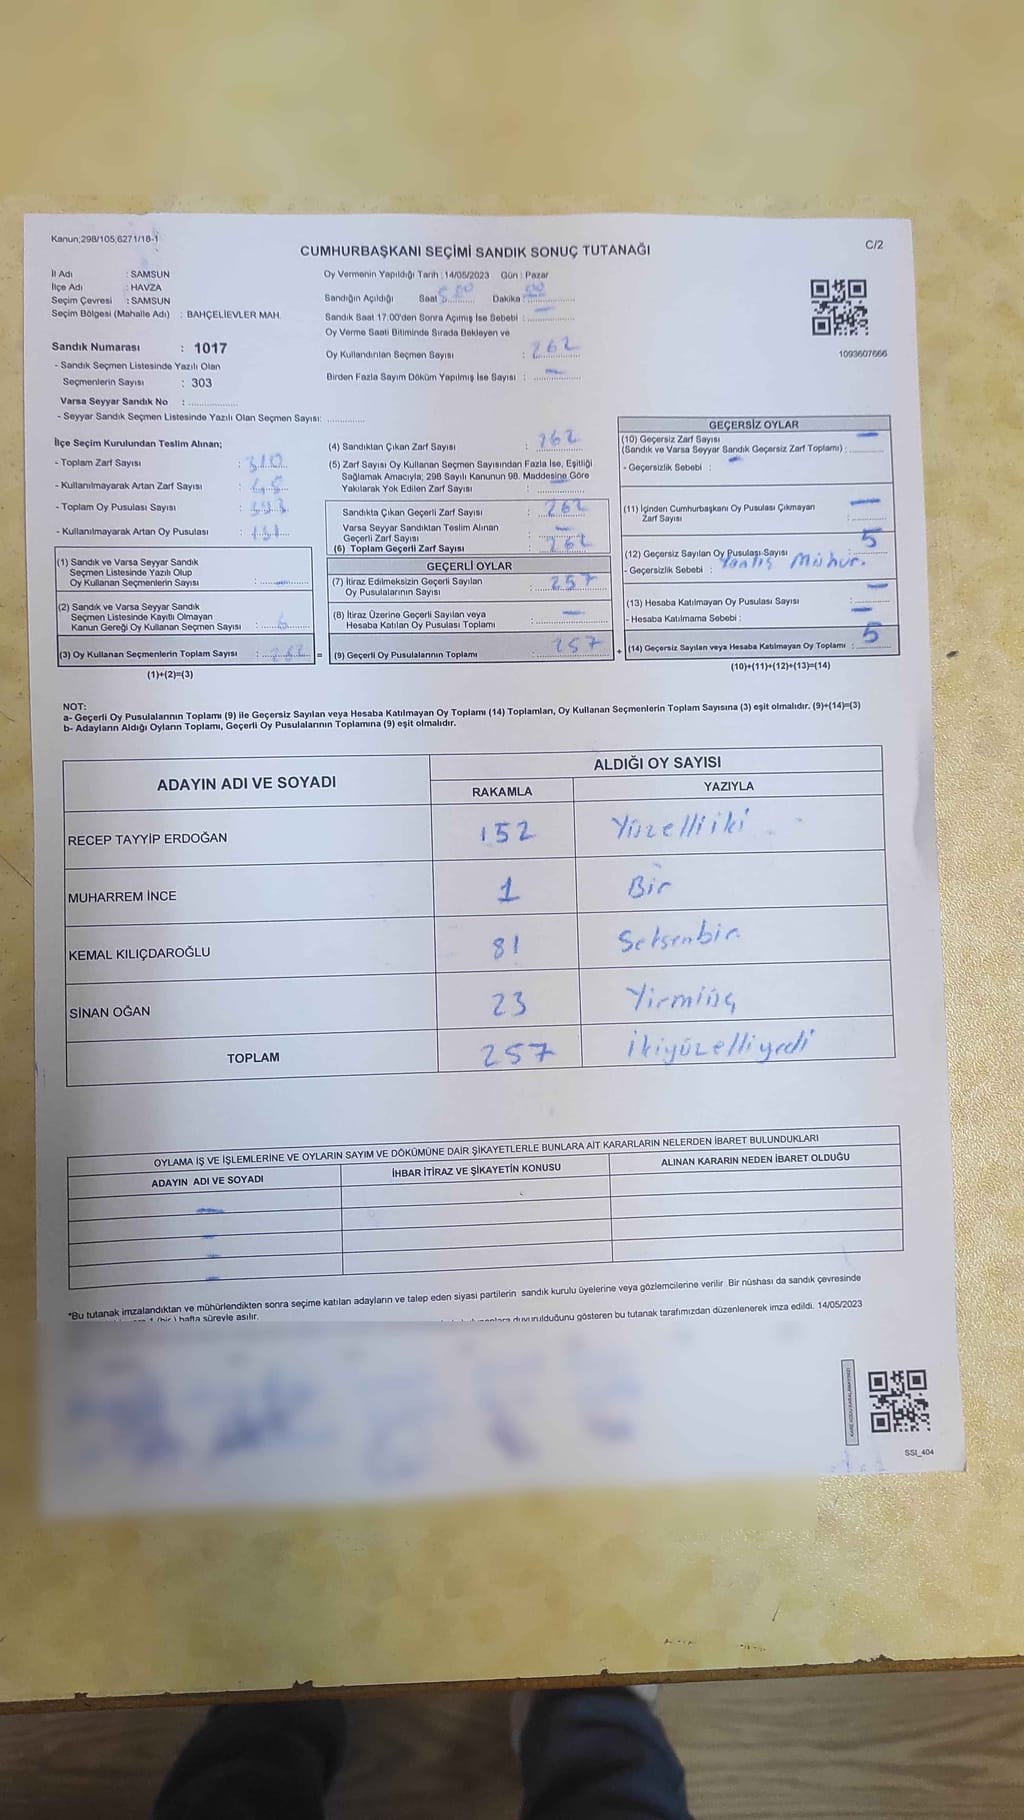 Kanun;298/105;6271/18-1
CUMHURBAŞKANI SEÇİMİ SANDIK SONUÇ TUTANAĞI
C/2
İl Adı : SAMSUN
İlçe Adı : HAVZA
Seçim Çevresi : SAMSUN
Seçim Bölgesi (Mahalle Adı) : BAHÇELİEVLER MAH.
Sandık Numarası : 1017
- Sandık Seçmen Listesinde Yazılı Olan
Seçmenlerin Sayısı : 303
Varsa Seyyar Sandık No :
- Seyyar Sandık Seçmen Listesinde Yazılı Olan Seçmen Sayısı:
Oy Vermenin Yapıldığı Tarih :14/05/2023 Gün : Pazar
Sandığın Açıldığı Saat Dakika
Sandık Saat 17:00'den Sonra Açımış İse Sebebi :
Oy Verme Saati Bitiminde Sırada Bekleyen ve
Oy Kullandırılan Seçmen Sayısı : 262
Birden Fazla Sayım Döküm Yapılmış İse Sayısı : —
1093607666
İlçe Seçim Kurulundan Teslim Alınan;
- Toplam Zarf Sayısı : 310
- Kullanılmayarak Artan Zarf Sayısı :
- Toplam Oy Pusulası Sayısı :
- Kullanılmayarak Artan Oy Pusulası : 131
(1) Sandık ve Varsa Seyyar Sandık
Seçmen Listesinde Yazılı Olup
Oy Kullanan Seçmenlerin Sayısı :
(2) Sandık ve Varsa Seyyar Sandık
Seçmen Listesinde Kayıtlı Olmayan
Kanun Gereği Oy Kullanan Seçmen Sayısı :
(3) Oy Kullanan Seçmenlerin Toplam Sayısı : 262 =
(1)+(2)=(3)
(4) Sandıktan Çıkan Zarf Sayısı : 262
(5) Zarf Sayısı Oy Kullanan Seçmen Sayısından Fazla İse, Eşitliği
Sağlamak Amacıyla; 298 Sayılı Kanunun 98. Maddesine Göre
Yakılarak Yok Edilen Zarf Sayısı :
Sandıkta Çıkan Geçerli Zarf Sayısı : 262
Varsa Seyyar Sandıktan Teslim Alınan
Geçerli Zarf Sayısı : —
(6) Toplam Geçerli Zarf Sayısı : 262
GEÇERLİ OYLAR
(7) İtiraz Edilmeksizin Geçerli Sayılan
Oy Pusulalarının Sayısı : 257
(8) İtiraz Üzerine Geçerli Sayılan veya
Hesaba Katılan Oy Pusulası Toplamı : —
(9) Geçerli Oy Pusulalarının Toplamı : 257 +
GEÇERSİZ OYLAR
(10) Geçersiz Zarf Sayısı
(Sandık ve Varsa Seyyar Sandık Geçersiz Zarf Toplamı) : —
- Geçersizlik Sebebi : —
(11) İçinden Cumhurbaşkanı Oy Pusulası Çıkmayan
Zarf Sayısı : —
(12) Geçersiz Sayılan Oy Pusulası Sayısı : 5
- Geçersizlik Sebebi : Yanlış Mühür.
(13) Hesaba Katılmayan Oy Pusulası Sayısı : —
- Hesaba Katılmama Sebebi : —
(14) Geçersiz Sayılan veya Hesaba Katılmayan Oy Toplamı : 5
(10)+(11)+(12)+(13)=(14)
NOT:
a- Geçerli Oy Pusulalarının Toplamı (9) ile Geçersiz Sayılan veya Hesaba Katılmayan Oy Toplamı (14) Toplamları, Oy Kullanan Seçmenlerin Toplam Sayısına (3) eşit olmalıdır. (9)+(14)=(3)
b- Adayların Aldığı Oyların Toplamı, Geçerli Oy Pusulalarının Toplamına (9) eşit olmalıdır.
ADAYIN ADI VE SOYADI
ALDIĞI OY SAYISI
RAKAMLA YAZIYLA
RECEP TAYYİP ERDOĞAN 152 Yüzelliiki
MUHARREM İNCE 1 Bir
KEMAL KILIÇDAROĞLU 81 Seksenbir
SİNAN OĞAN 23 Yirmiüç
TOPLAM 257 İkiyüzelliyedi
OYLAMA İŞ VE İŞLEMLERİNE VE OYLARIN SAYIM VE DÖKÜMÜNE DAİR ŞİKAYETLERLE BUNLARA AİT KARARLARIN NELERDEN İBARET BULUNDUKLARI
ADAYIN ADI VE SOYADI İHBAR İTİRAZ VE ŞİKAYETİN KONUSU ALINAN KARARIN NEDEN İBARET OLDUĞU
*Bu tutanak imzalandıktan ve mühürlendikten sonra seçime katılan adayların ve talep eden siyasi partilerin sandık kurulu üyelerine veya gözlemcilerine verilir. Bir nüshası da sandık çevresinde
1 (bir) hafta süreyle asılır.
duyurulduğunu gösteren bu tutanak tarafımızdan düzenlenerek imza edildi. 14/05/2023
SSI_404